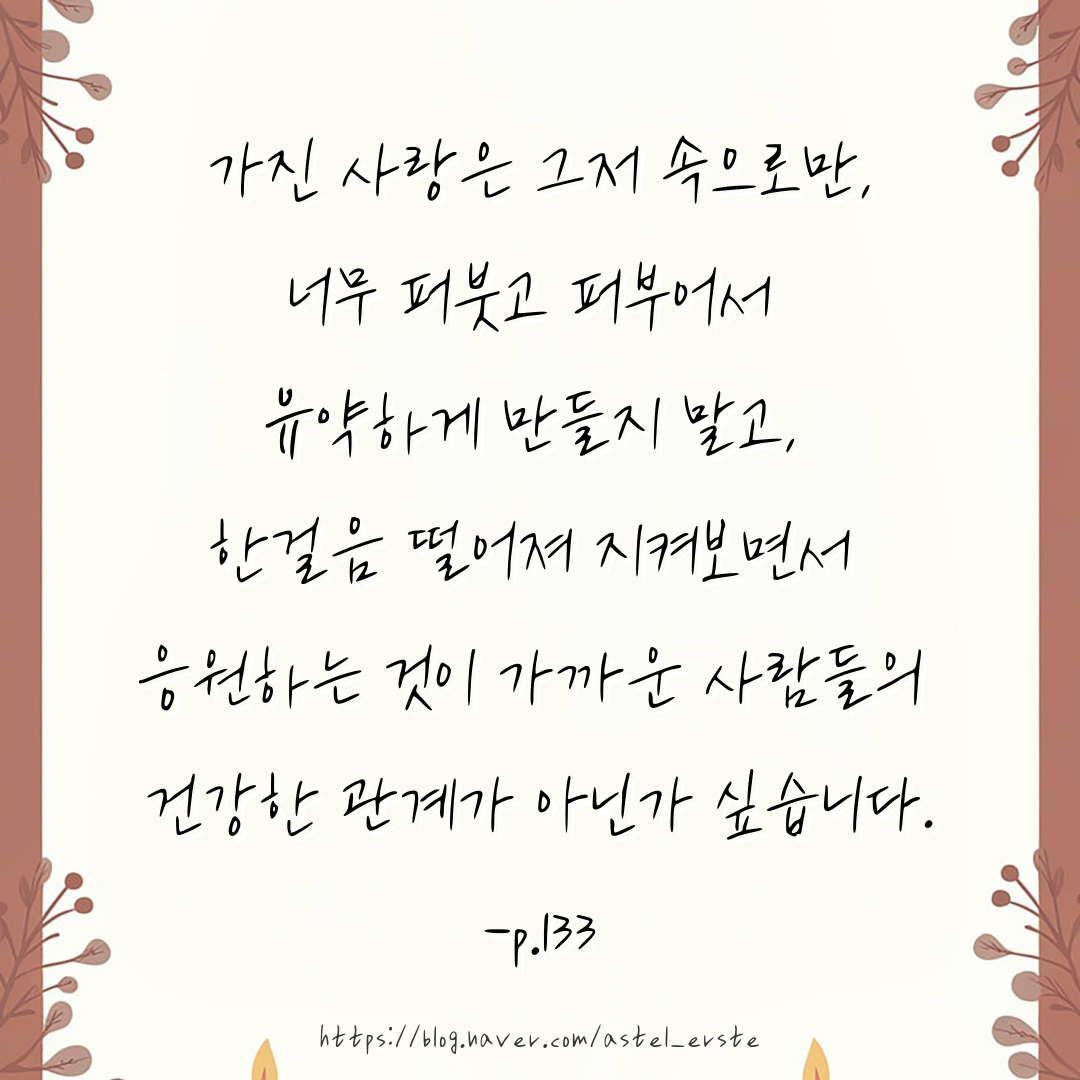 가진 사랑은 그저 속으로만,
너무 퍼붓고 퍼부어서
유약하게 만들지 말고,
한걸음 떨어져 지켜보면서
응원하는 것이 가까운 사람들의
건강한 관계가 아닌가 싶습니다.
-p.133
https://blog.naver.com/astel_erste